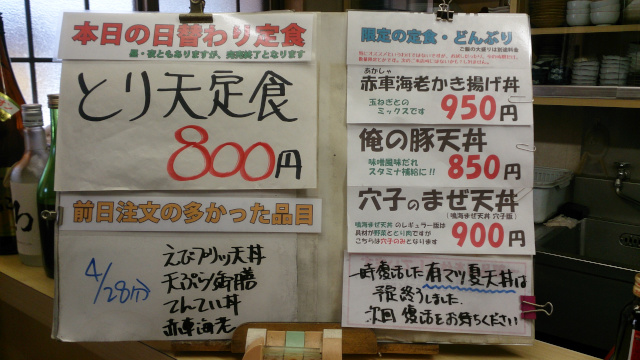 本日の日替わり定食
昼・夜ともありますが、完売終了となります
とり天定食
800円
前日注文の多かった品目
4/28分
えびプリッ天丼
天ぷら御膳
てんてい丼
赤車海老
限定の定食・どんぶり
ご飯の大盛りは別途料金
あかしゃ
赤車海老かき揚げ丼
玉ねぎとの
ミックスです
950円
俺の豚天丼
味噌風味だれ
スタミナ補給に!!
850円
穴子のまぜ天丼
(鳴海まぜ天丼 穴子版)
鳴海まぜ天丼 のレギュラー版は
具材が野菜ととり肉ですが
こちらは穴子のみとなります
900円
一時復活した有マリ夏天丼は
予定終うしました。
次回復活をお待ちください